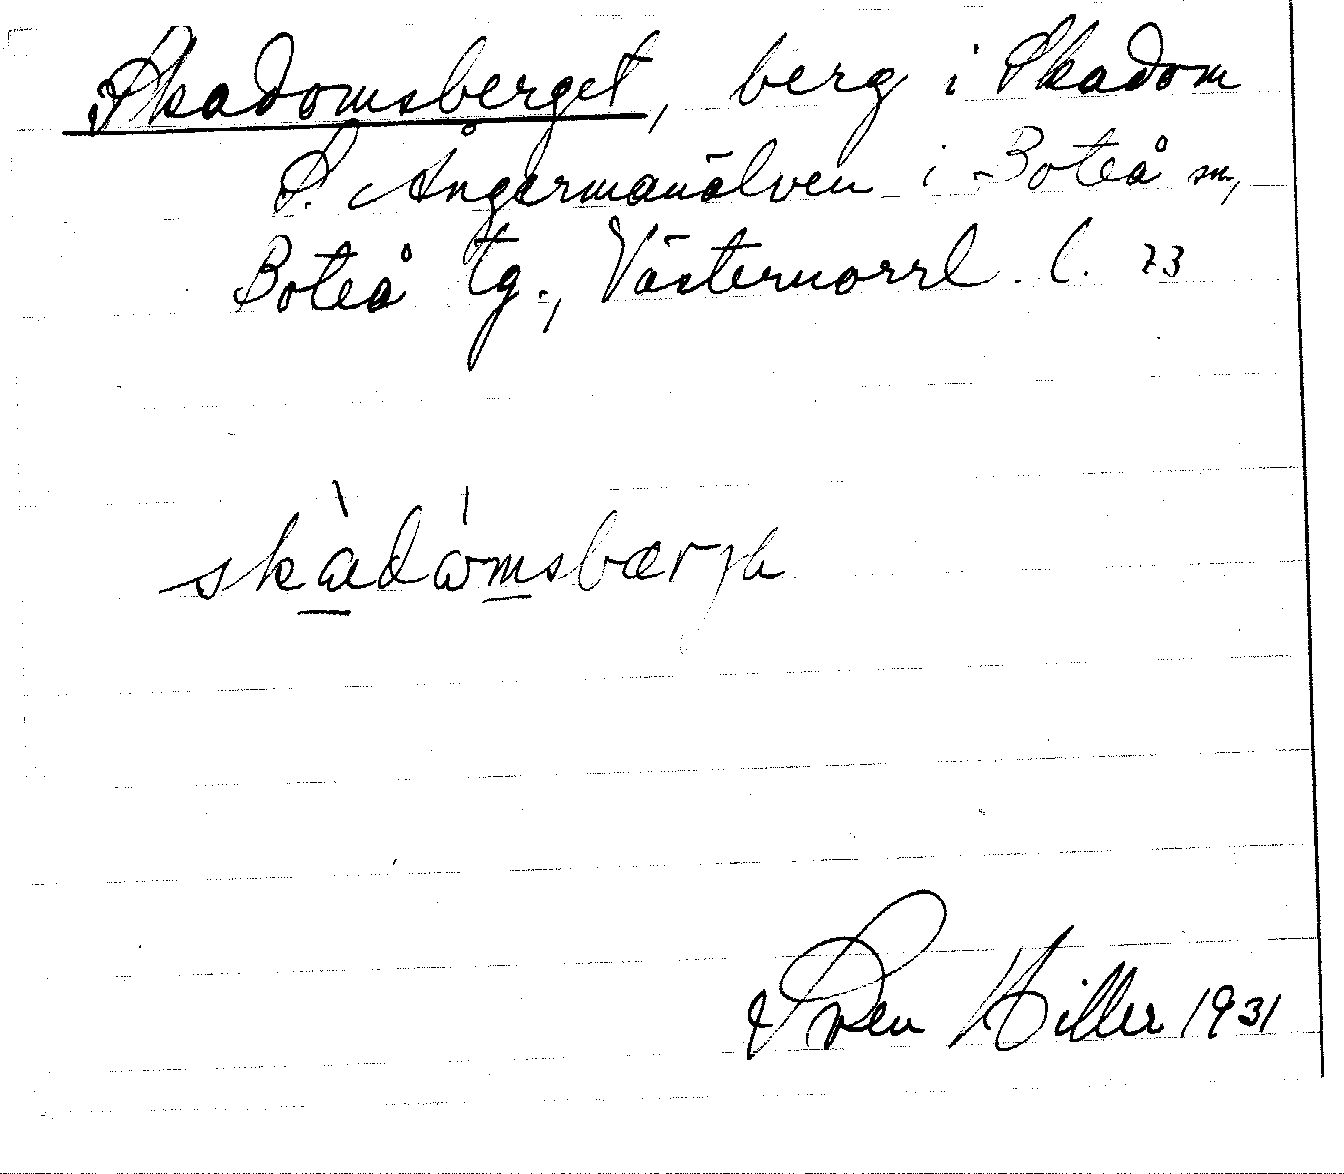 Skadomsberget, berg i Skadom
S. Ångermanälven i Boteå sn,
Boteå tg., Västernorrl. l. 73
Sven Hiller 1931